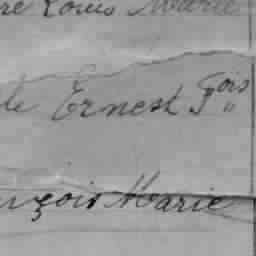 re Louis Marie
le Ernest Fois
nçois Marie